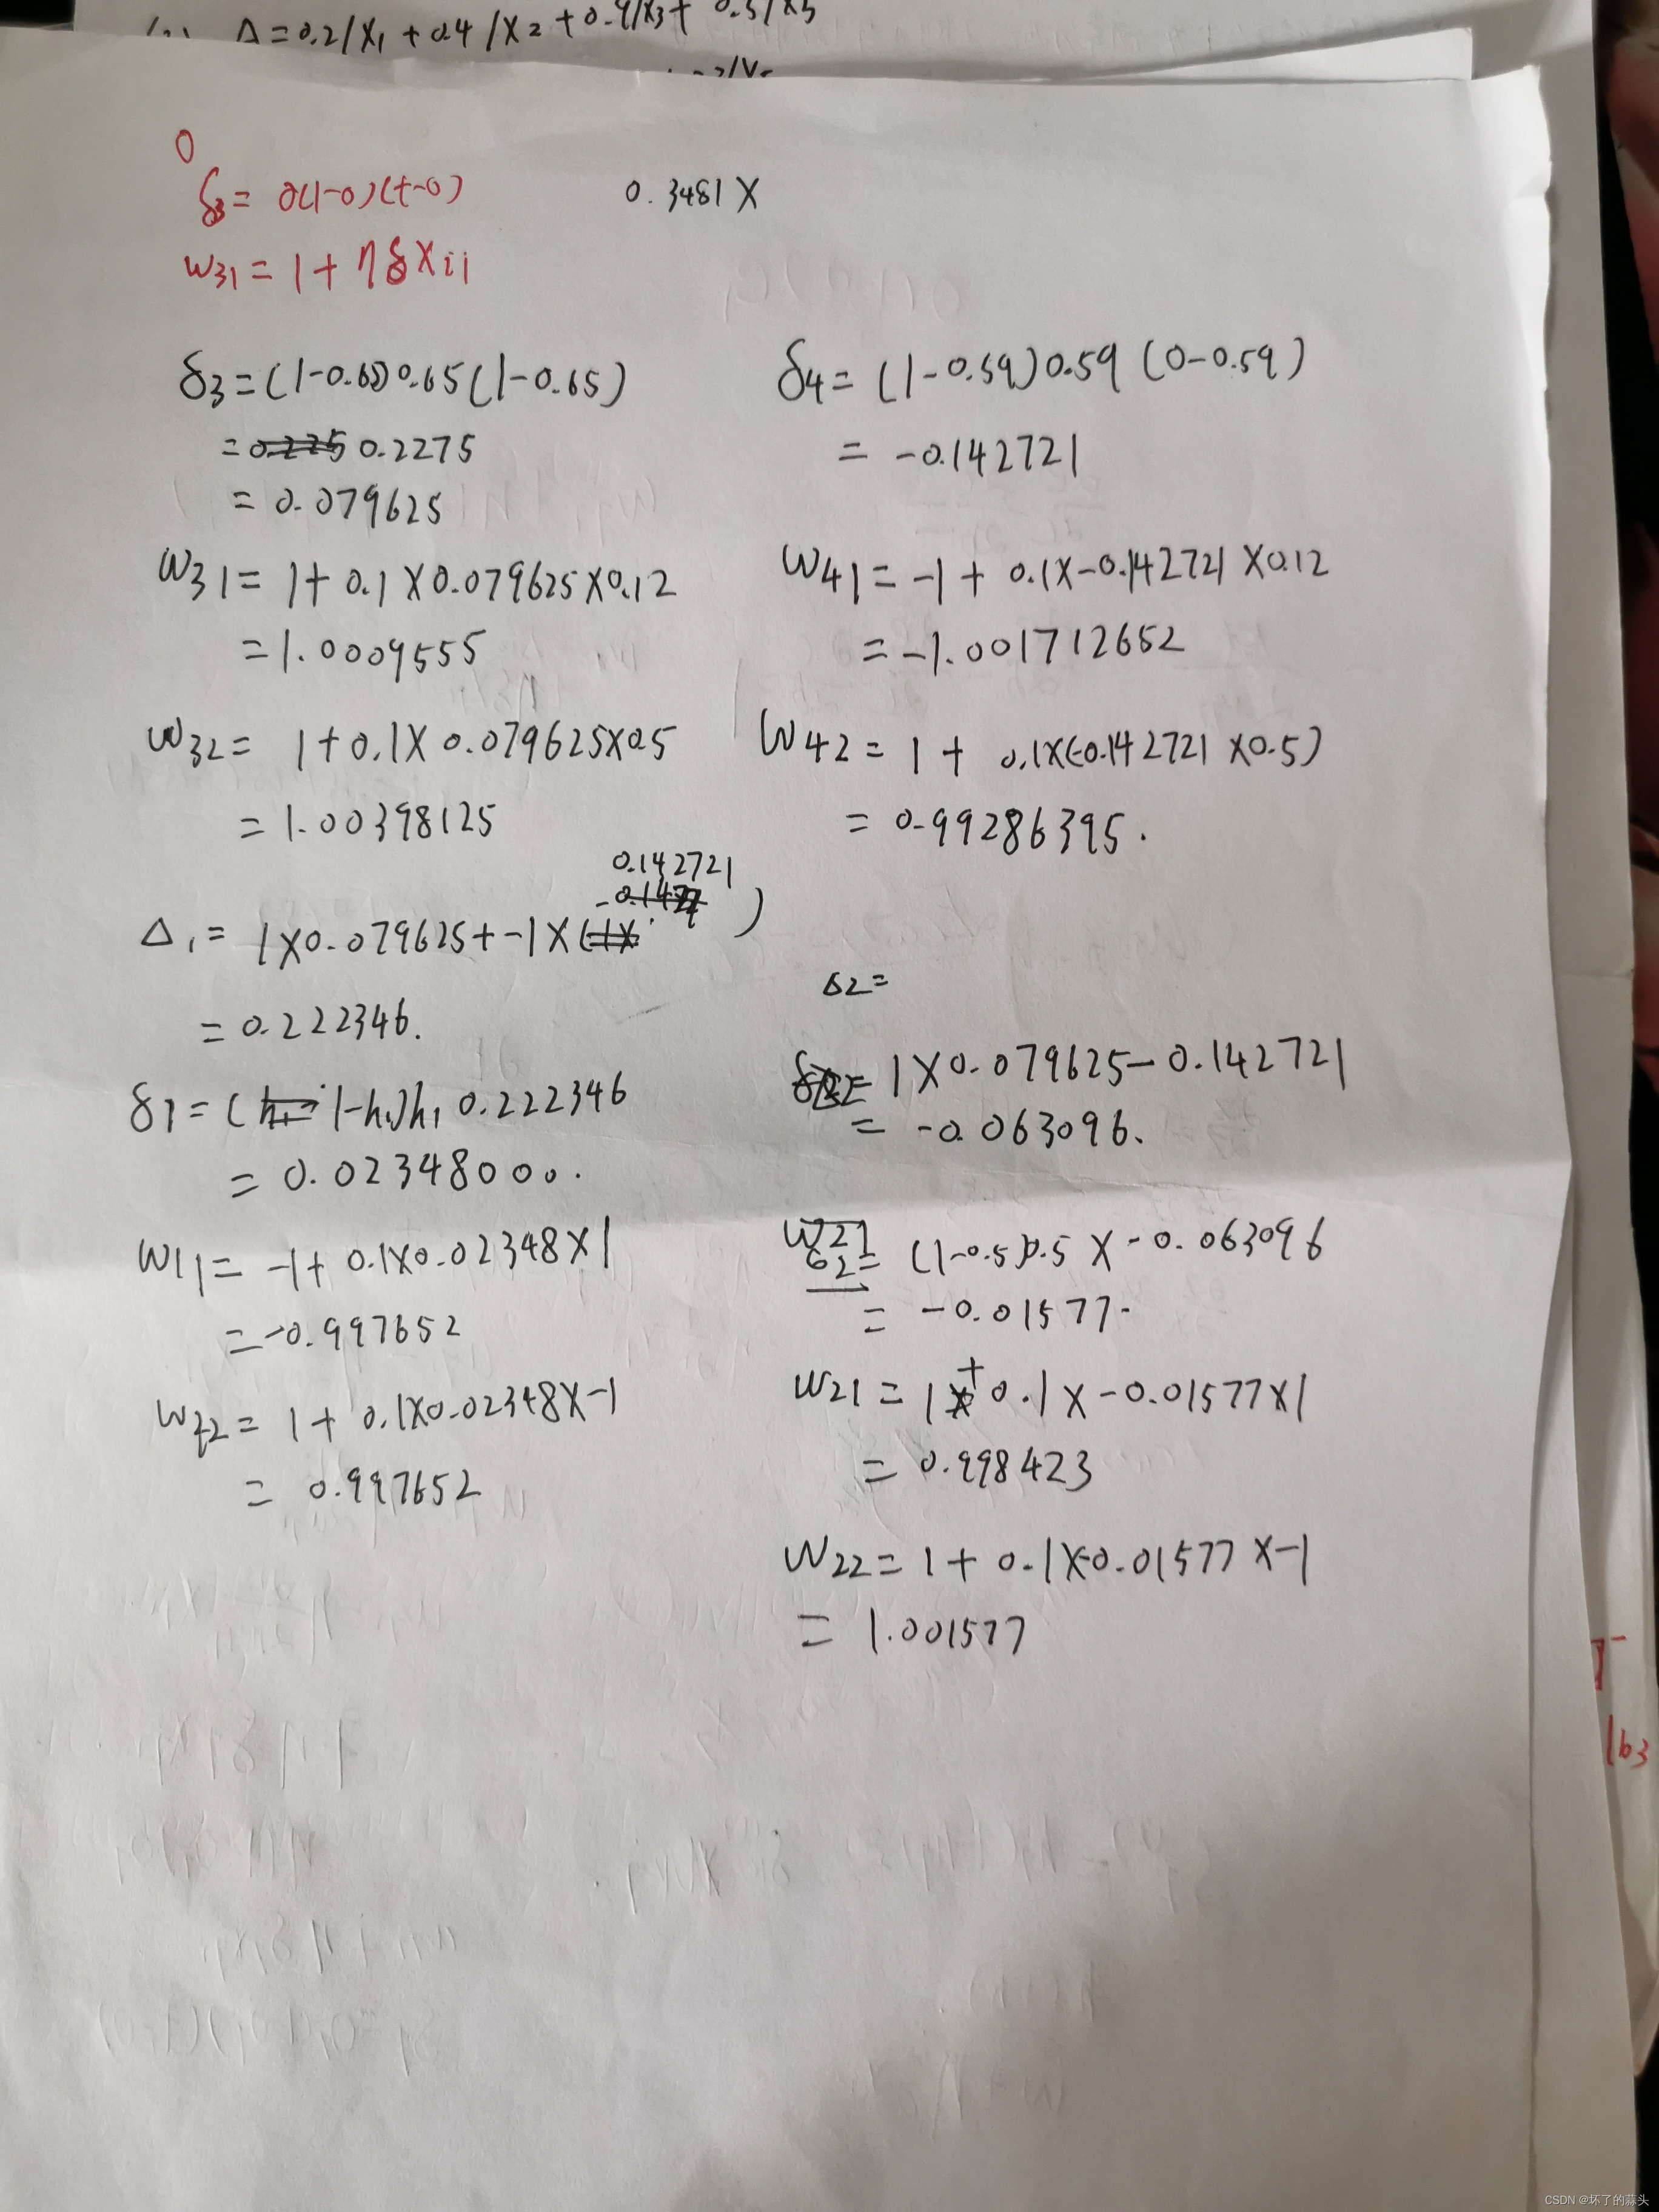 Δ=0.2/X₁+0.4/X₂+0.9/X3+0.5/X5
0
δ3= 0(1-0)(t-0)
0.3481X
W31=1+ηδXij
δ3=(1-0.65)0.65(1-0.65)
=0.225 0.2275
=0.079625
W31=1+0.1X0.079625X0.12
=1.0009555
W32=1+0.1X0.079625X0.5
=1.00398125
Δ1=1X0.079625+-1X(-0.142721)
=0.222346.
δ1=(1-h₁)h₁ 0.222346
=0.02348000.
W11=-1+0.1X0.02348X1
=-0.997652
=1+0.1X0.02348X-1
=0.997652
δ4=(1-0.59)0.59(0-0.59)
=-0.142721
W41=-1+0.1X-0.142721X0.12
=-1.001712652
W42=1+0.1X(-0.142721X0.5)
=0.99286395.
Δ2=
=1X0.079625-0.142721
=-0.063096.
W21
62=(1-0.5)0.5X-0.063096
=-0.01577.
W21=1+0.1X-0.01577X1
=0.998423
W22=1+0.1X-0.01577X-1
=1.001577
1b3
CSDN @坏了的蒜头